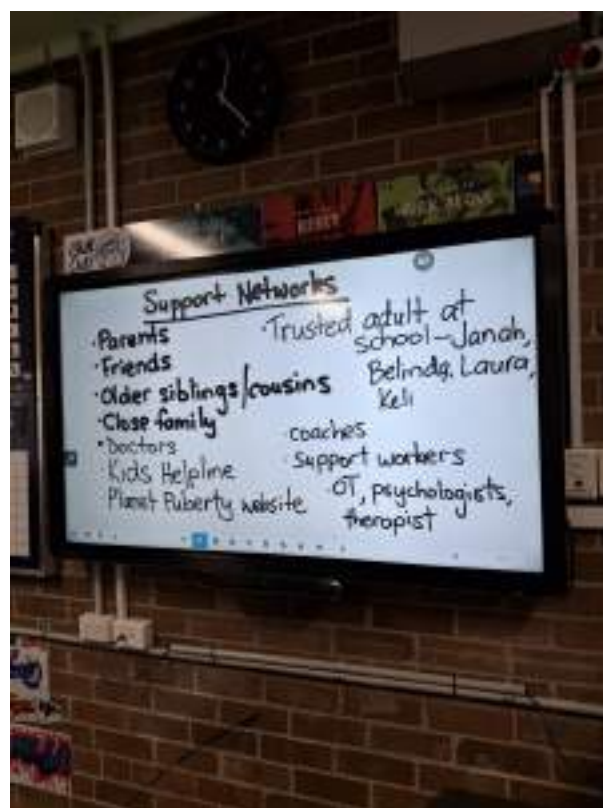 Support Networks
·Parents
·Friends
·Older siblings/cousins
·Close family
·Doctors
·Kids Helpline
·Planet Puberty website
·Trusted adult at
school-Janah,
Belinda, Laura,
Keli
·coaches
·Support workers
OT, psychologists,
therapist